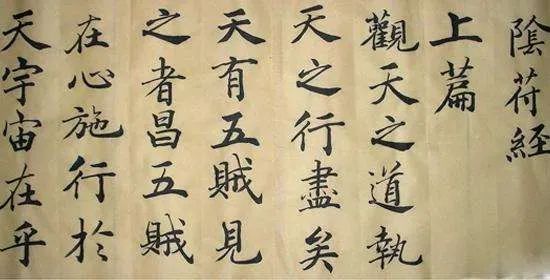 陰符経
上篇
觀天之道執
天之行盡矣
天有五賊見
之者昌五賊
在心施行於
天宇宙在乎